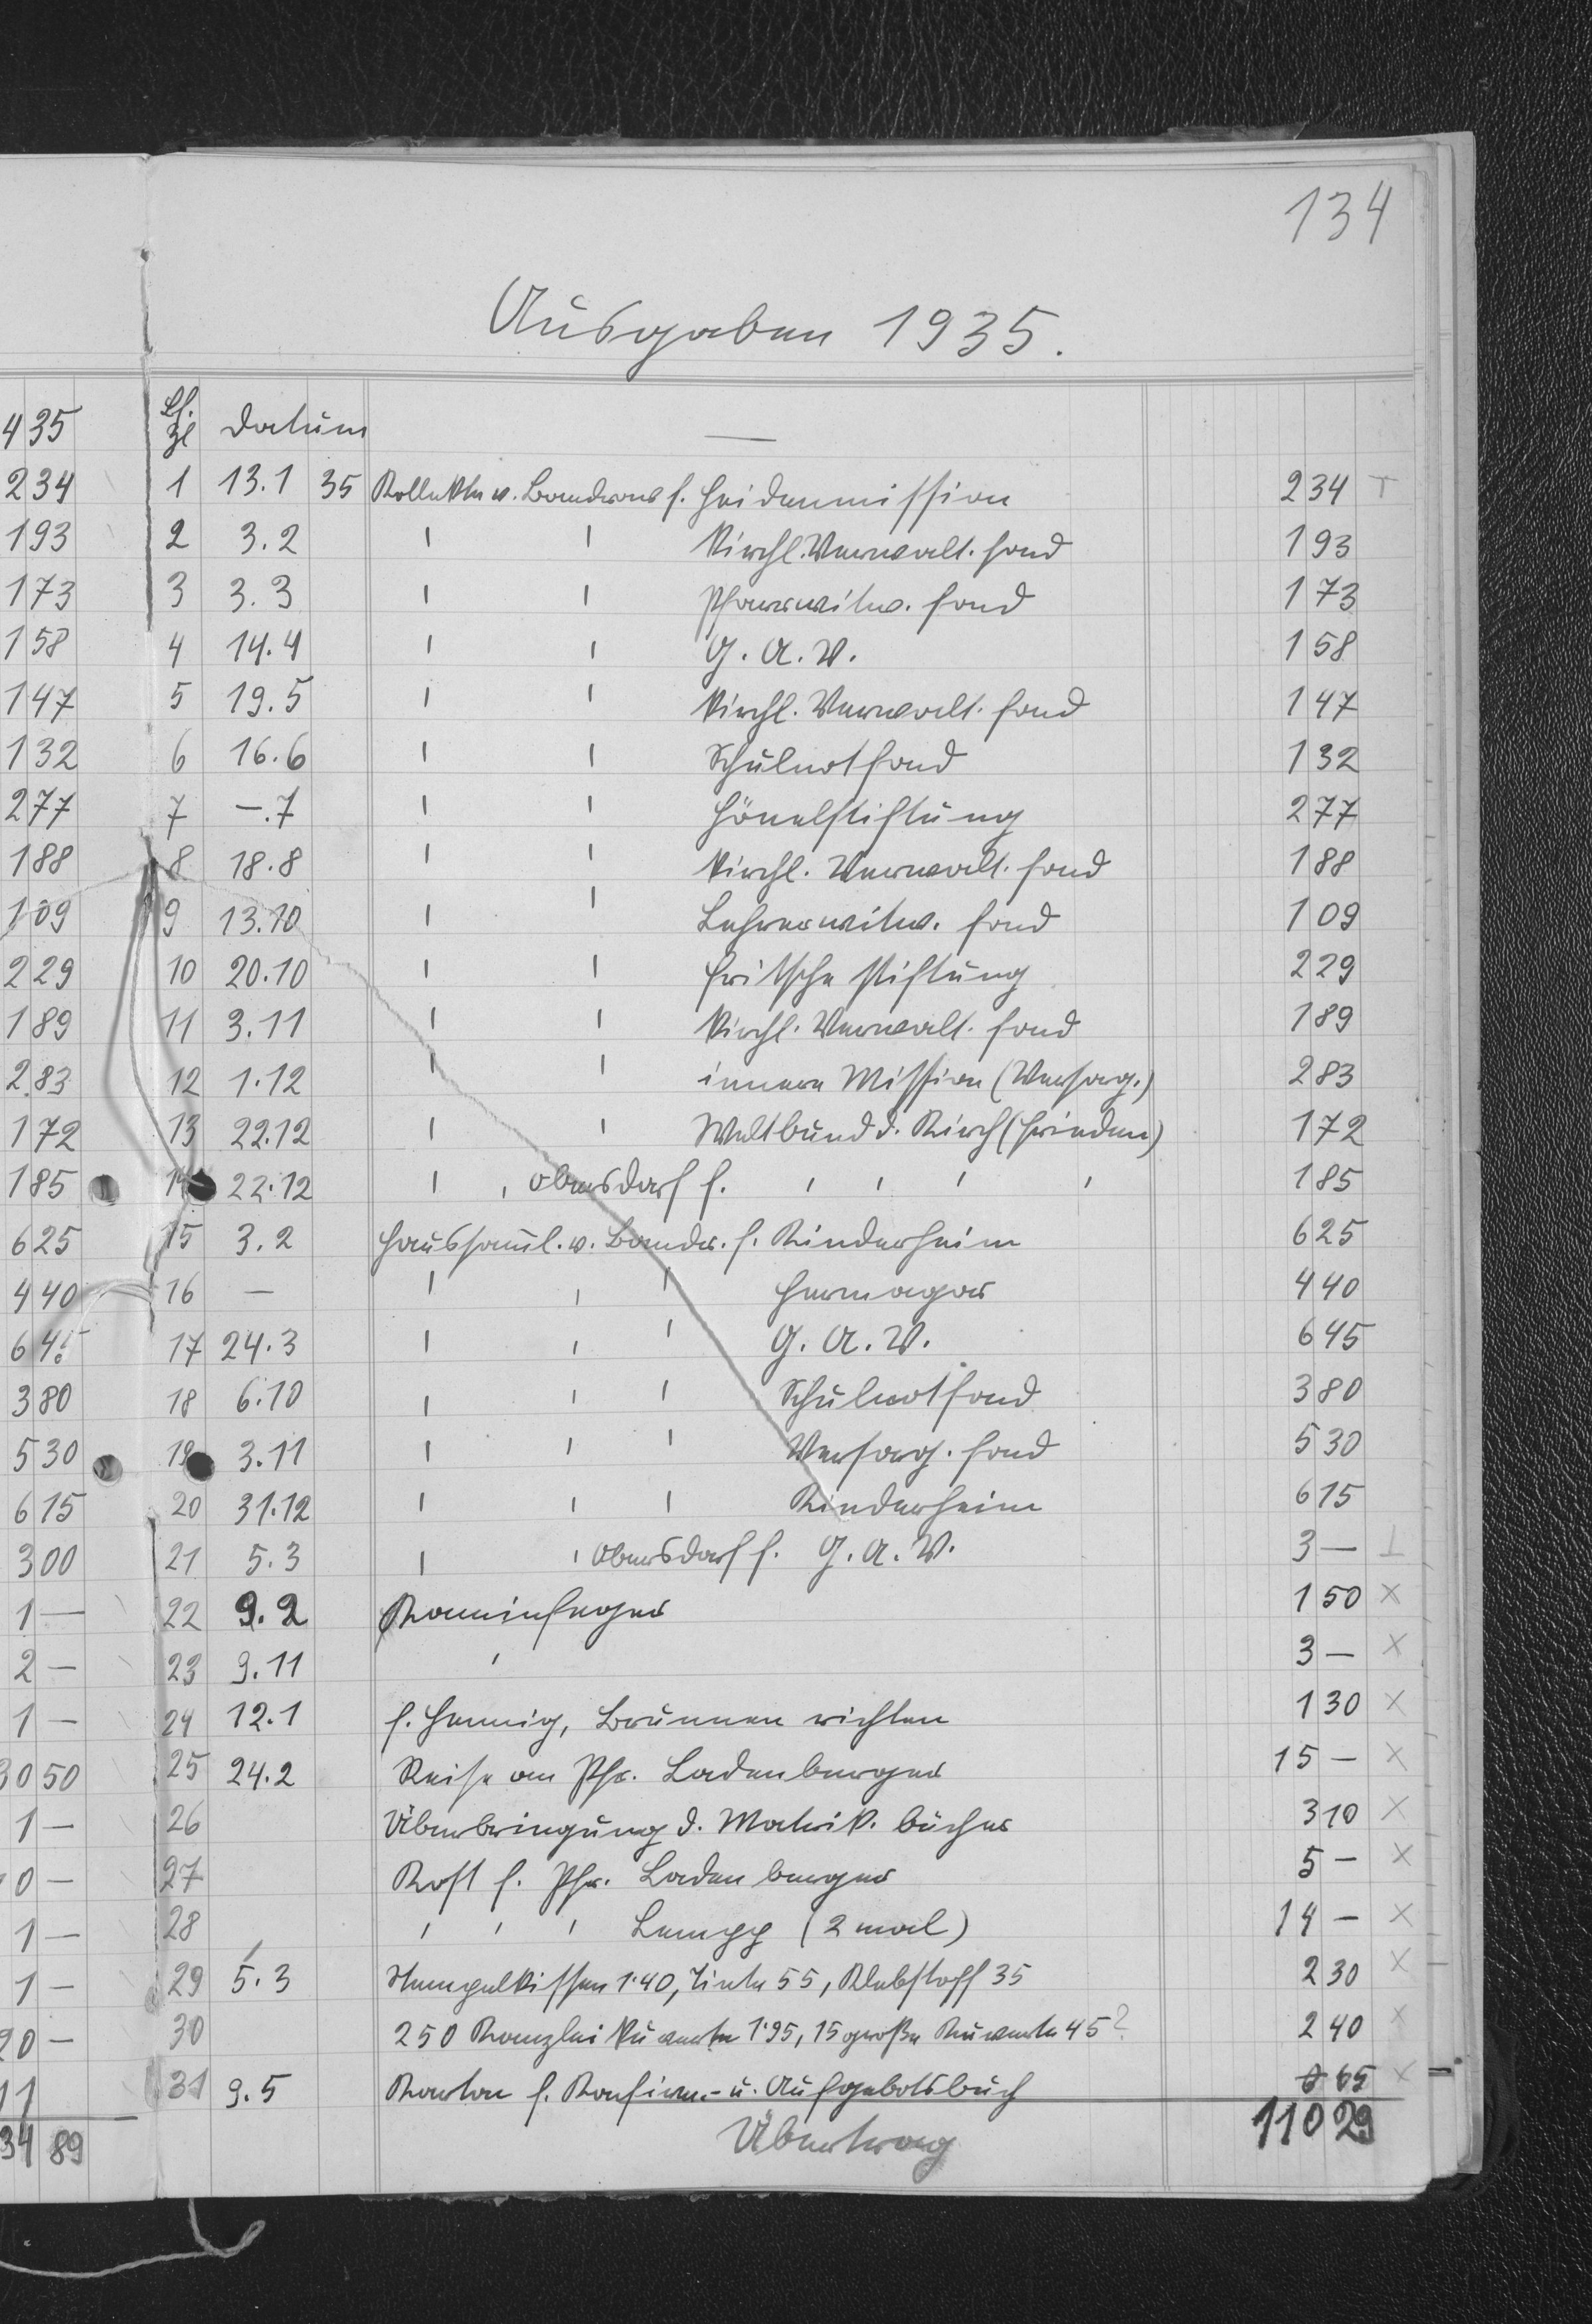 134
Ausgaben 1935.
435 Lf. Zl Datum —
234 1 13.1 35 Kollekte v. f. Heidenmission 234 T
193 2 3.2 " " kirchl. Verwalt. fond 193
173 3 3.3 " " Pfarrwitw. fond 173
158 4 14.4 " " G. A. V. 158
147 5 19.5 " " kirchl. Verwalt. fond 147
132 6 16.6 " " Schulnotfond 132
277 7 —.7 " " Hönelstiftung 277
188 8 18.8 " " kirchl. Verwalt. fond 188
109 9 13.10 " " Lehrerwitw. fond 109
229 10 20.10 " " Fritsche Stiftung 229
189 11 3.11 " " kirchl. Verwalt. fond 189
283 12 1.12 " " innere Mission (Versorg.) 283
172 13 22.12 " " Weltbund d. Kirch (Frieden) 172
185 14 22.12 " " Obersdorf f. " " " " 185
625 15 3.2 Haussaml. v. f. Kinderheim 625
440 16 — " " " Hermagor 440
645 17 24.3 " " " G. A. V. 645
380 18 6.10 " " " Schulnotfond 380
530 19 3.11 " " " Versorg. fond 530
615 20 31.12 " " " Kinderheim 615
300 21 5.3 " " Obersdorf f. G. A. V. 3 — ⊥
1 — 22 9.2 Kaminfeger 150 ×
2 — 23 9.11 " 3 — ×
1 — 24 12.1 f. Hennig, Brunnen richten 130 ×
3050 25 24.2 Reise an Pfr. Ladenburger 15 — ×
1 — 26 Überbringung d. Matrik. bücher 310 ×
0 — 27 Kost f. Pfr. Ladenburger 5 — ×
1 — 28 " " " Lempp (2 mal) 14 — ×
1 — 29 5.3 Stempelkissen 1·40, Tinte 55, Klebstoff 35 230 ×
20 — 30 250 Kanzlei kuverte 1·95, 15 große Kuverte 45 ? 240 ×
11 31 9.5 Karton f. Konfirm.- u. Aufgebotsbuch 0 65 ×
34 89 Übertrag 110 29